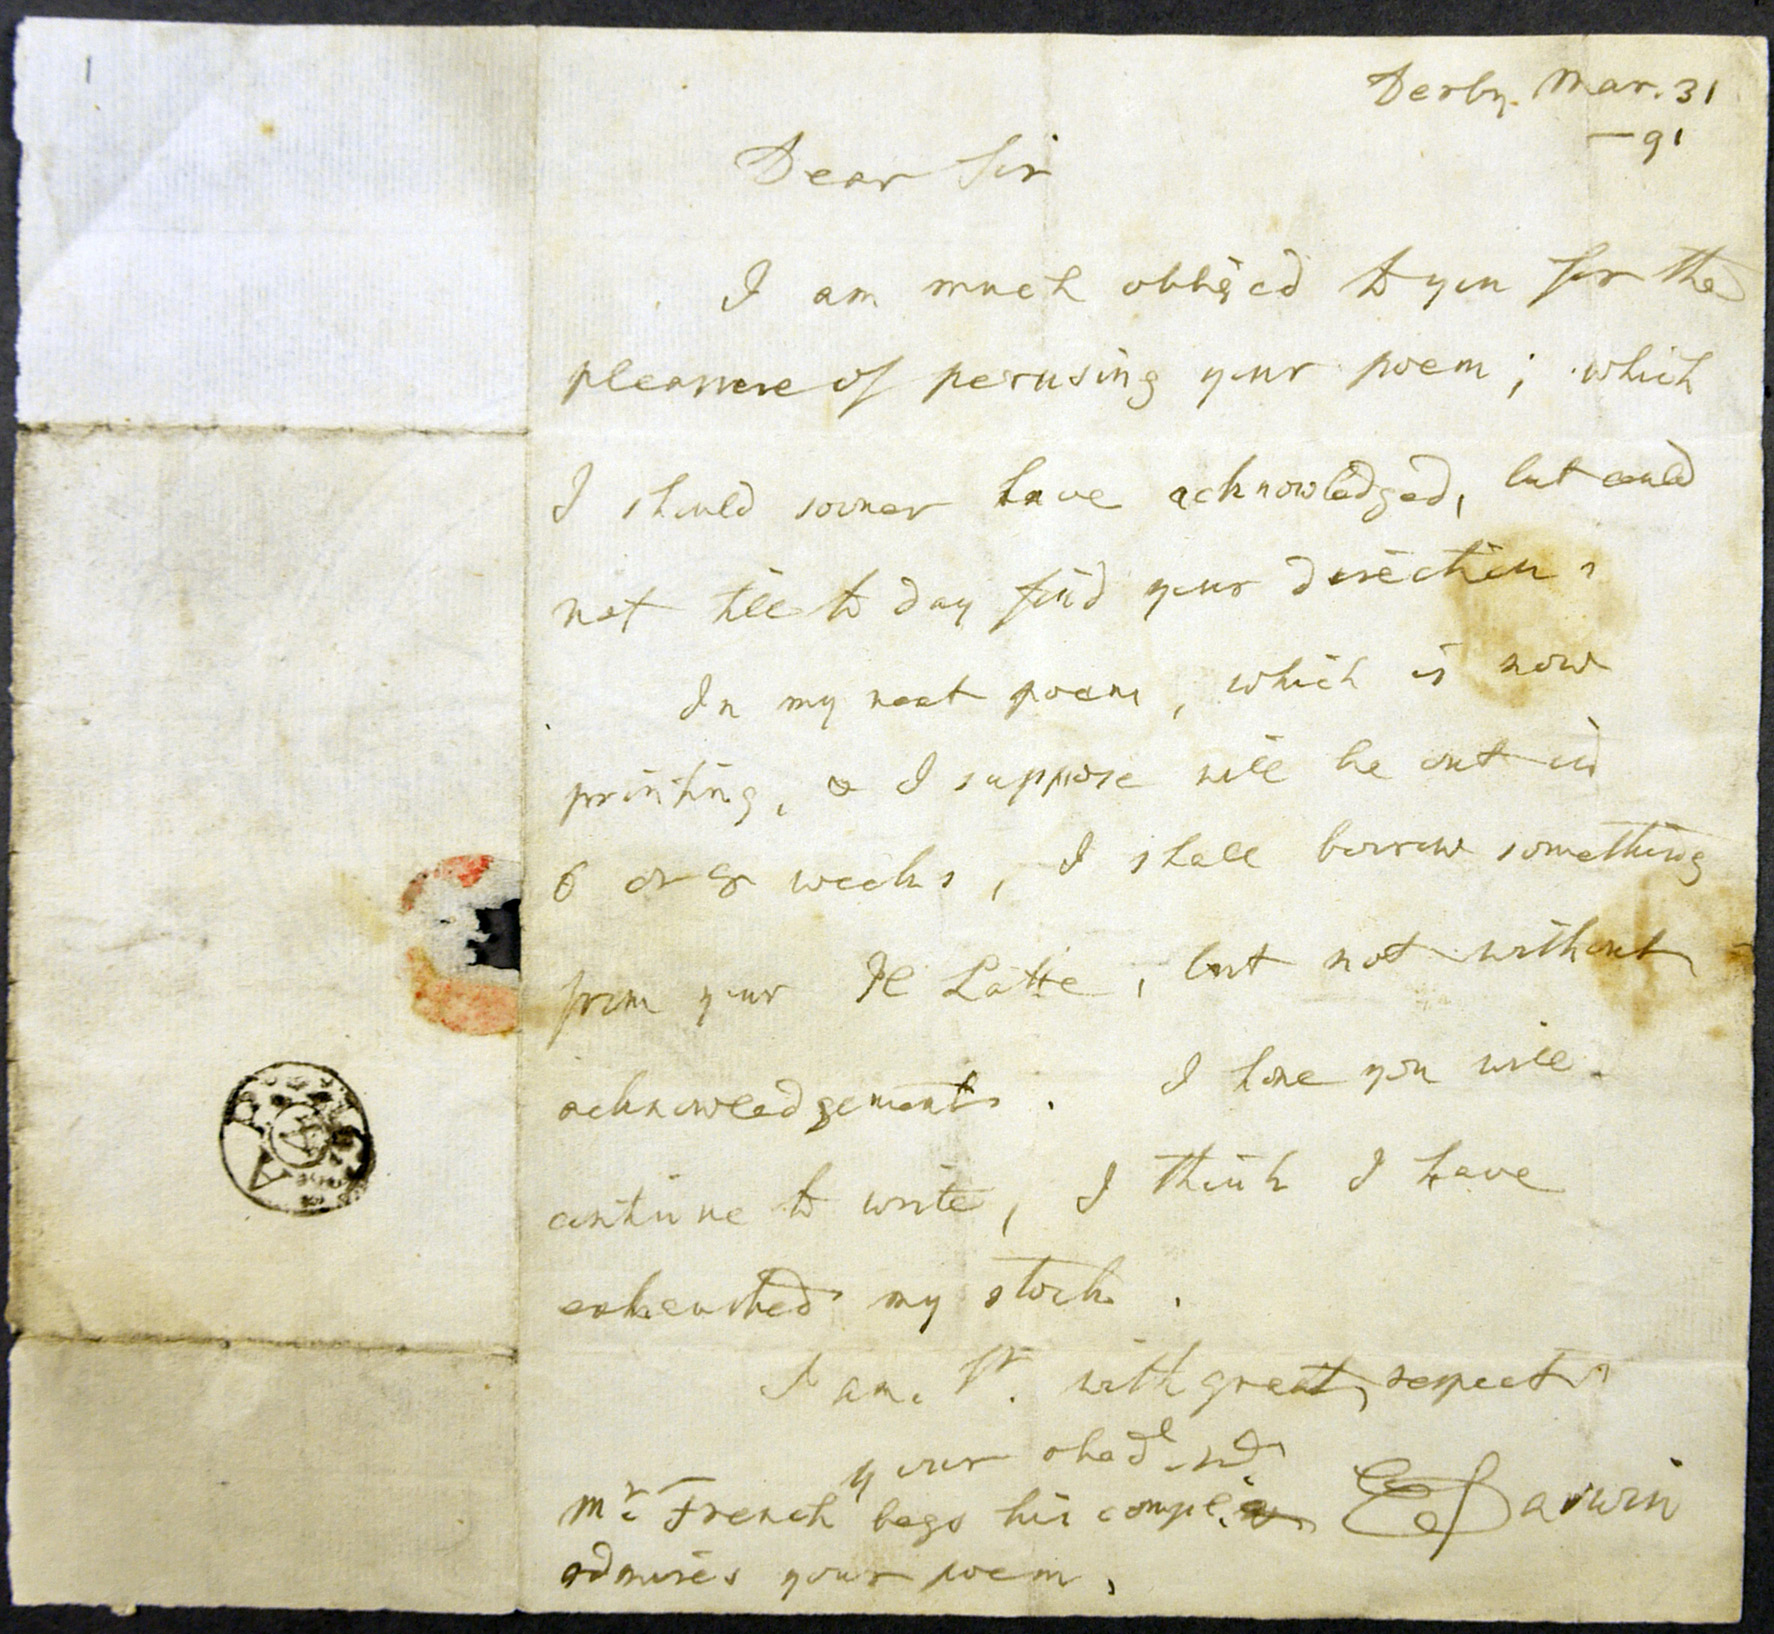 1
Derby. Mar. 31
— 91
Dear Sir
I am much obliged to you for the
pleasure of perusing your poem; which
I should sooner have acknowledged, but could
not till to day find your direction.
In my next poem, which is now
printing, & I suppose will be out in
6 or 8 weeks, I shall borrow something
from your Il Latte, but not without
acknowledgements. I hope you will
continue to write, I think I have
exhausted my stock.
I am, Sr. with great respect
your obedt. sert.
Mr. French begs his compl. & E Darwin
admires your poem.